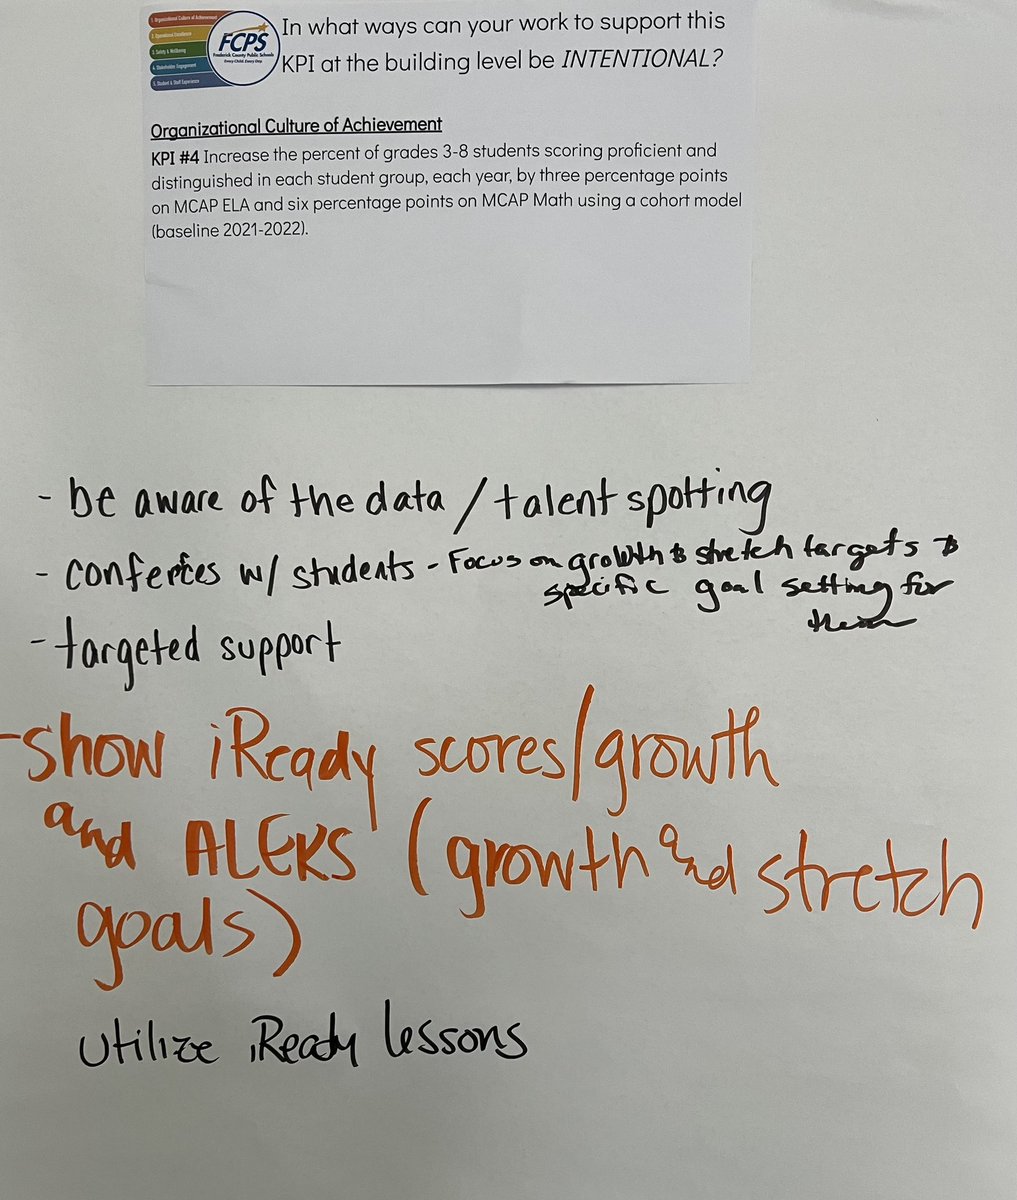 1. Organizational Culture of Achievement
2. Operational Excellence
3. Safety & Wellbeing
4. Stakeholder Engagement
5. Student & Staff Experience
FCPS
Frederick County Public Schools
Every Child. Every Day.
In what ways can your work to support this
KPI at the building level be INTENTIONAL?
Organizational Culture of Achievement
KPI #4 Increase the percent of grades 3-8 students scoring proficient and
distinguished in each student group, each year, by three percentage points
on MCAP ELA and six percentage points on MCAP Math using a cohort model
(baseline 2021-2022).
- be aware of the data / talent spotting
- confereces w/ students - Focus on growth & stretch targets &
specific goal setting for
them
- targeted support
- show iReady scores/growth
and ALEKS (growth and stretch
goals)
utilize iReady lessons